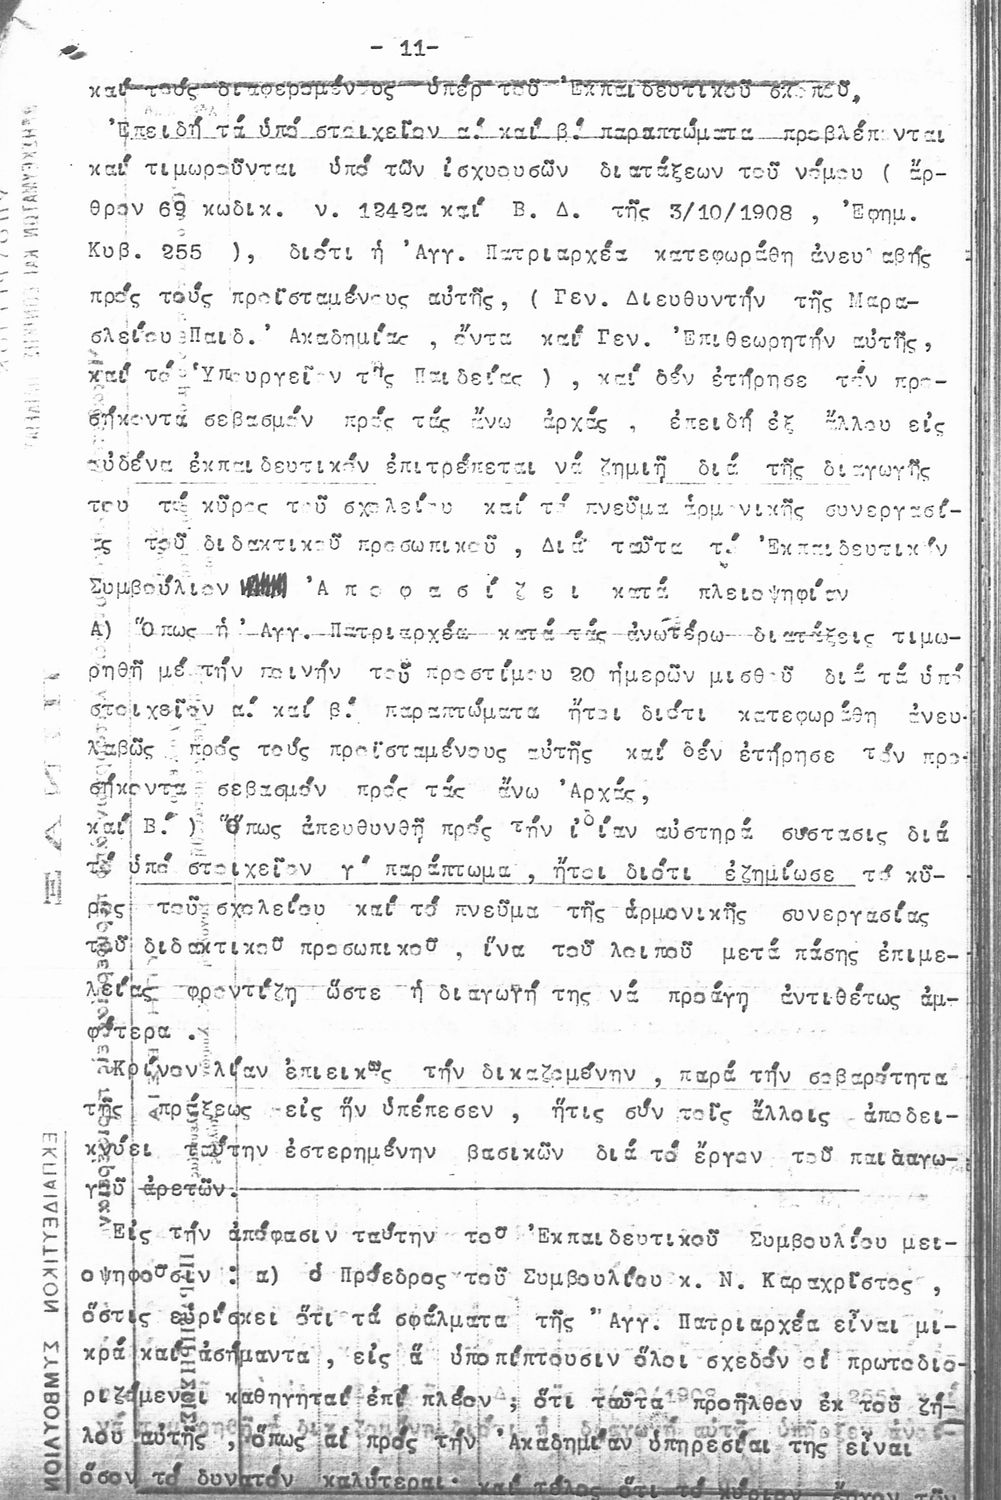 - 11-
καί τούς διαφερομένους ὑπέρ τοῦ Ἐκπαιδευτικοῦ σκοποῦ,
Ἐπειδή τά ὑπό στοιχεῖον α.' καί β.' παραπτώματα προβλέπονται
καί τιμωροῦνται ὑπό τῶν ἰσχυουσῶν διατάξεων τοῦ νόμου ( ἄρ-
θρον 69 κωδικ. ν. 1242α καί Β. Δ. τῆς 3/10/1908 , Ἐφημ.
Κυβ. 255 ), διότι ἡ Ἀγγ. Πατριαρχέα κατεφωράθη ἀνευλαβής
πρός τούς προϊσταμένους αὐτῆς, ( Γεν. Διευθυντήν τῆς Μαρα-
σλείου Παιδ. Ἀκαδημίας , ὄντα καί Γεν. Ἐπιθεωρητήν αὐτῆς,
καί τό Ὑπουργεῖον τῆς Παιδείας ) , καί δέν ἐτήρησε τόν προ-
σήκοντα σεβασμόν πρός τάς ἄνω ἀρχάς , ἐπειδή ἐξ ἄλλου εἰς
οὐδένα ἐκπαιδευτικόν ἐπιτρέπεται νά ζημιῇ διά τῆς διαγωγῆς
του τό κῦρος τοῦ σχολείου καί τό πνεῦμα ἁρμονικῆς συνεργασί-
ας τοῦ διδακτικοῦ προσωπικοῦ , Διά ταῦτα τό Ἐκπαιδευτικόν
Συμβούλιον Ἀ π ο φ α σ ί ζ ε ι κατά πλειοψηφίαν
Α) Ὅπως ἡ Ἀγγ. Πατριαρχέα κατά τάς ἀνωτέρω διατάξεις τιμω-
ρηθῇ μέ τήν ποινήν τοῦ προστίμου 20 ἡμερῶν μισθοῦ διά τά ὑπό
στοιχεῖον α.' καί β.' παραπτώματα ἤτοι διότι κατεφωράθη ἀνευ-
λαβῶς πρός τούς προϊσταμένους αὐτῆς καί δέν ἐτήρησε τόν προ-
σήκοντα σεβασμόν πρός τάς ἄνω Ἀρχάς,
καί Β.' ) Ὅπως ἀπευθυνθῇ πρός τήν ἰδίαν αὐστηρά σύστασις διά
τό ὑπό στοιχεῖον γ' παράπτωμα , ἤτοι διότι ἐζημίωσε τό κῦ-
ρος τοῦ σχολείου καί τό πνεῦμα τῆς ἁρμονικῆς συνεργασίας
τοῦ διδακτικοῦ προσωπικοῦ , ἵνα τοῦ λοιποῦ μετά πάσης ἐπιμε-
λείας φροντίζῃ ὥστε ἡ διαγωγή της νά προάγῃ ἀντιθέτως ἀμ-
φότερα .
Κρῖνον λίαν ἐπιεικῶς τήν δικαζομένην , παρά τήν σοβαρότητα
τῆς πράξεως εἰς ἥν ὑπέπεσεν , ἥτις σύν τοῖς ἄλλοις ἀποδει-
κνύει ταύτην ἐστερημένην βασικῶν διά τό ἔργον τοῦ παιδαγω-
γοῦ ἀρετῶν.
Εἰς τήν ἀπόφασιν ταύτην τοῦ Ἐκπαιδευτικοῦ Συμβουλίου μει-
οψηφοῦσιν : α) ὁ Πρόεδρος τοῦ Συμβουλίου κ. Ν. Καραχρῖστος ,
ὅστις εὑρίσκει ὅτι τά σφάλματα τῆς Ἀγγ. Πατριαρχέα εἶναι μι-
κρά καί ἀσήμαντα , εἰς ἅ ὑποπίπτουσιν ὅλοι σχεδόν οἱ πρωτοδιο-
ριζόμενοι καθηγηταί ἐπί πλέον ; ὅτι ταῦτα προῆλθον ἐκ τοῦ ζή-
λου αὐτῆς , ὅπως αἱ πρός τήν Ἀκαδημίαν ὑπηρεσίαι της εἶναι
ὅσον τό δυνατόν καλύτεραι· καί τέλος ὅτι τό κύριον ἔργον τῶν
ΕΚΠΑΙΔΕΥΤΙΚΟΝ ΣΥΜΒΟΥΛΙΟΝ